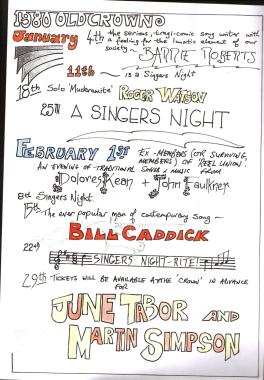 1980 OLD CROWN
January 4th the serious, tragi-comic song writer with
a feeling for the lunatic element of our
society ~ BARRIE ROBERTS
11th ~ is a Singers Night
18th Solo 'Muckramite' ROGER WATSON
25th A SINGERS NIGHT
FEBRUARY 1ST EX-MEMBERS (OR SURVIVING
MEMBERS) OF 'REEL UNION'
AN EVENING OF TRADITIONAL SONGS & MUSIC FROM
Dolores Kean + John Faulkner
8th Singers Night.
15th The ever popular man of contemporary song ~
BILL CADDICK
22nd SINGERS NIGHT-RITE!
29th TICKETS WILL BE AVAILABLE AT THE 'CROWN' IN ADVANCE
FOR
JUNE TABOR AND
MARTIN SIMPSON